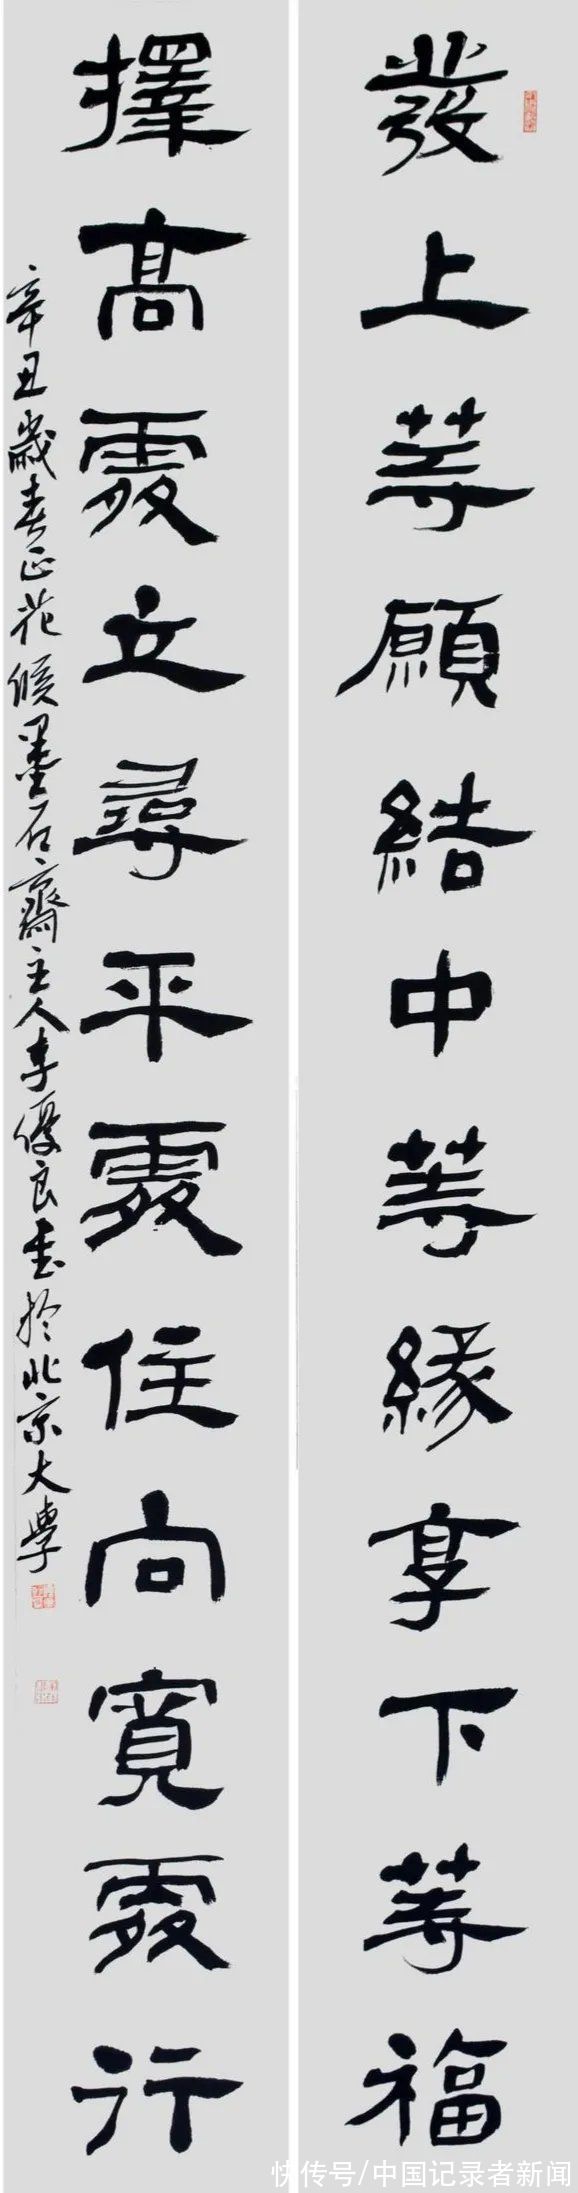 發上等願結中等緣享下等福
擇高處立尋平處住向寬處行
辛丑歲春正花候墨石齋主人李優良書於北京大學
快传号/中国记录者新闻